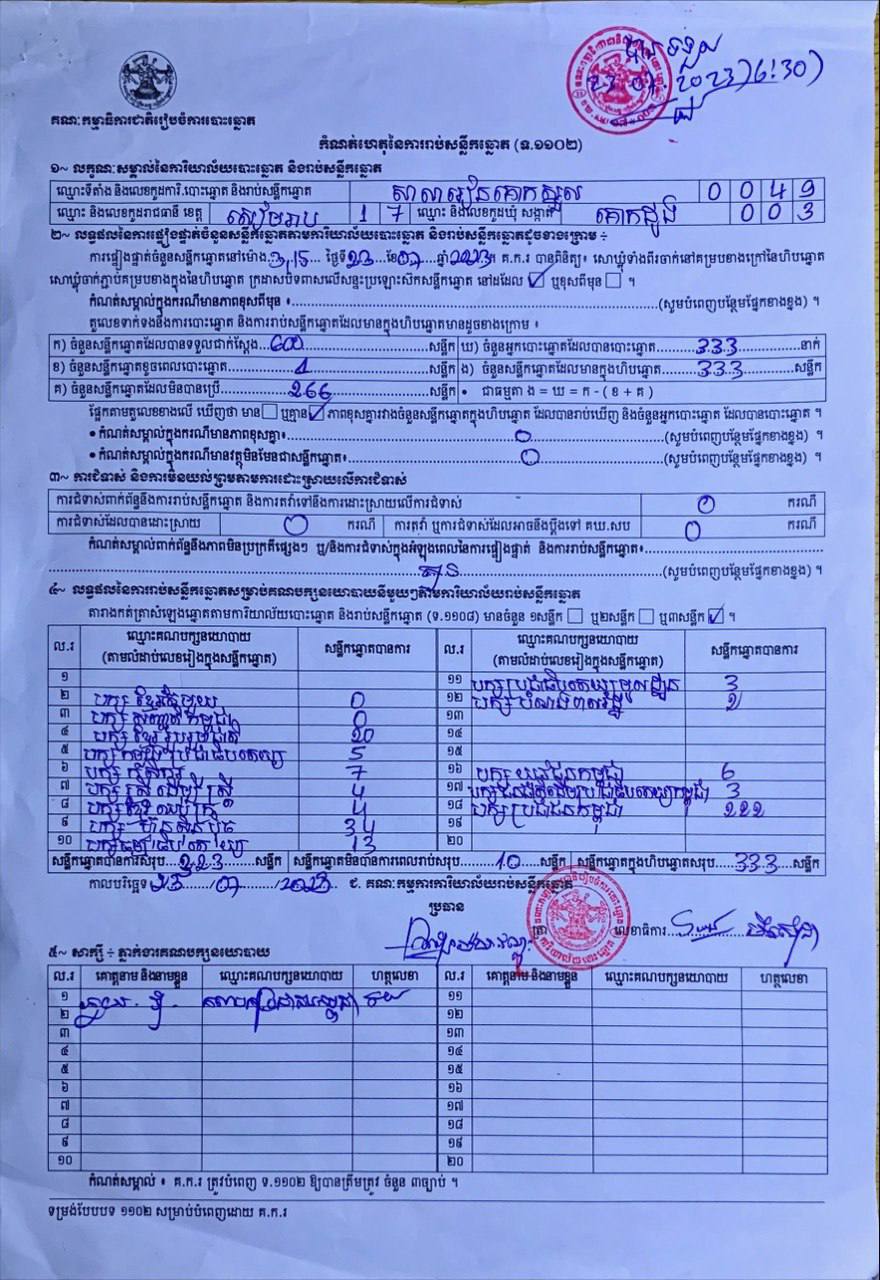 បានទទួល
23.07.2023)6:30)
គណៈកម្មាធិការជាតិរៀបចំការបោះឆ្នោត
កំណត់ហេតុនៃការរាប់សន្លឹកឆ្នោត (ទ.១១០២)
១~ លក្ខណៈសម្គាល់នៃការិយាល័យបោះឆ្នោត និងរាប់សន្លឹកឆ្នោត
ឈ្មោះទីតាំង និងលេខកូដការិ.បោះឆ្នោត និងរាប់សន្លឹកឆ្នោត សាលារៀនគោកស្នួល 0 0 4 9
ឈ្មោះ និងលេខកូដរាជធានី ខេត្ត សៀមរាប 1 7 ឈ្មោះ និងលេខកូដឃុំ សង្កាត់ គោកដូង 0 0 3
២~ លទ្ធផលនៃការផ្ទៀងផ្ទាត់ចំនួនសន្លឹកឆ្នោតតាមការិយាល័យបោះឆ្នោត និងរាប់សន្លឹកឆ្នោតដូចខាងក្រោម ÷
ការផ្ទៀងផ្ទាត់ចំនួនសន្លឹកឆ្នោតនៅម៉ោង 3,15 ថ្ងៃទី 23 ខែ 07 ឆ្នាំ 2023។ គ.ក.រ បានពិនិត្យ៖ សោឃ្មុំទាំងពីរចាក់នៅគម្របខាងក្រៅនៃហិបឆ្នោត
សោឃ្មុំចាក់ភ្ជាប់គម្របខាងក្នុងនៃហិបឆ្នោត ក្រដាសបិទពាសលើសន្ទះប្រឡោះសឹកសន្លឹកឆ្នោត នៅដដែល ☑ ឬខុសពីមុន ☐ ។
កំណត់សម្គាល់ក្នុងករណីមានភាពខុសពីមុន ៖ (សូមបំពេញបន្ថែមផ្នែកខាងខ្នង) ។
តួលេខទាក់ទងនឹងការបោះឆ្នោត និងការរាប់សន្លឹកឆ្នោតដែលមានក្នុងហិបឆ្នោតមានដូចខាងក្រោម ៖
ក) ចំនួនសន្លឹកឆ្នោតដែលបានទទួលជាក់ស្តែង 600 សន្លឹក ឃ) ចំនួនអ្នកបោះឆ្នោតដែលបានបោះឆ្នោត 333 នាក់
ខ) ចំនួនសន្លឹកឆ្នោតខូចពេលបោះឆ្នោត 1 សន្លឹក ង) ចំនួនសន្លឹកឆ្នោតដែលមានក្នុងហិបឆ្នោត 333 សន្លឹក
គ) ចំនួនសន្លឹកឆ្នោតដែលមិនបានប្រើ 266 សន្លឹក • ជាធម្មតា ង = ឃ = ក - ( ខ + គ )
ផ្អែកតាមតួលេខខាងលើ ឃើញថា មាន ☐ ឬគ្មាន ☑ ភាពខុសគ្នារវាងចំនួនសន្លឹកឆ្នោតក្នុងហិបឆ្នោត ដែលបានរាប់ឃើញ និងចំនួនអ្នកបោះឆ្នោត ដែលបានបោះឆ្នោត ។
• កំណត់សម្គាល់ក្នុងករណីមានភាពខុសគ្នា៖ 0 (សូមបំពេញបន្ថែមផ្នែកខាងខ្នង) ។
• កំណត់សម្គាល់ក្នុងករណីមានវត្ថុមិនមែនជាសន្លឹកឆ្នោត៖ 0 (សូមបំពេញបន្ថែមផ្នែកខាងខ្នង) ។
៣~ ការជំទាស់ និងការមិនយល់ព្រមតាមការដោះស្រាយលើការជំទាស់
ការជំទាស់ពាក់ព័ន្ធនឹងការរាប់សន្លឹកឆ្នោត និងការតវ៉ាទៅនឹងការដោះស្រាយលើការជំទាស់ 0 ករណី
ការជំទាស់ដែលបានដោះស្រាយ 0 ករណី ការតវ៉ា ឬការជំទាស់ដែលអាចនឹងប្តឹងទៅ គឃ.សប 0 ករណី
កំណត់សម្គាល់ពាក់ព័ន្ធនឹងភាពមិនប្រក្រតីផ្សេងៗ ឬ/និងការជំទាស់ក្នុងអំឡុងពេលនៃការផ្ទៀងផ្ទាត់ និងការរាប់សន្លឹកឆ្នោត៖
គ្មាន (សូមបំពេញបន្ថែមផ្នែកខាងខ្នង) ។
៤~ លទ្ធផលនៃការរាប់សន្លឹកឆ្នោតសម្រាប់គណបក្សនយោបាយនីមួយៗតាមការិយាល័យរាប់សន្លឹកឆ្នោត
តារាងកត់ត្រាសំឡេងឆ្នោតតាមការិយាល័យបោះឆ្នោត និងរាប់សន្លឹកឆ្នោត (ទ.១១០៨) មានចំនួន ១សន្លឹក ☐ ឬ២សន្លឹក ☐ ឬ៣សន្លឹក ☑ ។
ល.រ ឈ្មោះគណបក្សនយោបាយ (តាមលំដាប់លេខរៀងក្នុងសន្លឹកឆ្នោត) សន្លឹកឆ្នោតបានការ ល.រ ឈ្មោះគណបក្សនយោបាយ (តាមលំដាប់លេខរៀងក្នុងសន្លឹកឆ្នោត) សន្លឹកឆ្នោតបានការ
១ ១១ បក្សប្រជាធិបតេយ្យមូលដ្ឋាន 3
២ បក្ស ខ្មែរតែមួយ 0 ១២ បក្ស បំណងពលរដ្ឋ 2
៣ បក្ស សញ្ជាតិកម្ពុជា 0 ១៣
៤ បក្ស ខ្មែររួបរួមជាតិ 20 ១៤
៥ បក្ស កម្ពុជា ប្រជាធិបតេយ្យ 5 ១៥
៦ បក្ស កសិករ 7 ១៦ បក្ស យុវជនកម្ពុជា 6
៧ បក្ស ស្រីដើម្បីស្រ្តី 4 ១៧ បក្សជនជាតិដើមប្រជាធិបតេយ្យកម្ពុជា 3
៨ 4 ១៨ បក្ស ប្រជាជនកម្ពុជា 222
៩ បក្ស ហ៊្វុនស៊ិនប៉ិច 34 ១៩
១០ បក្សធម្មាធិបតេយ្យ 13 ២០
សន្លឹកឆ្នោតបានការសរុប 323 សន្លឹក សន្លឹកឆ្នោតមិនបានការពេលរាប់សរុប 10 សន្លឹក សន្លឹកឆ្នោតក្នុងហិបឆ្នោតសរុប 333 សន្លឹក
កាលបរិច្ឆេទ 23/07/2023 ៩. គណៈកម្មការការិយាល័យរាប់សន្លឹកឆ្នោត
ប្រធាន
ត្រា លេខាធិការ
៥~ សាក្សី ÷ ភ្នាក់ងារគណបក្សនយោបាយ
ល.រ គោត្តនាម និងនាមខ្លួន ឈ្មោះគណបក្សនយោបាយ ហត្ថលេខា ល.រ គោត្តនាម និងនាមខ្លួន ឈ្មោះគណបក្សនយោបាយ ហត្ថលេខា
១ គណបក្សប្រជាជនកម្ពុជា ១១
២ ១២
៣ ១៣
៤ ១៤
៥ ១៥
៦ ១៦
៧ ១៧
៨ ១៨
៩ ១៩
១០ ២០
កំណត់សម្គាល់ ៖ គ.ក.រ ត្រូវបំពេញ ទ.១១០២ ឱ្យបានត្រឹមត្រូវ ចំនួន ៣ច្បាប់ ។
ទម្រង់បែបបទ ១១០២ សម្រាប់បំពេញដោយ គ.ក.រ